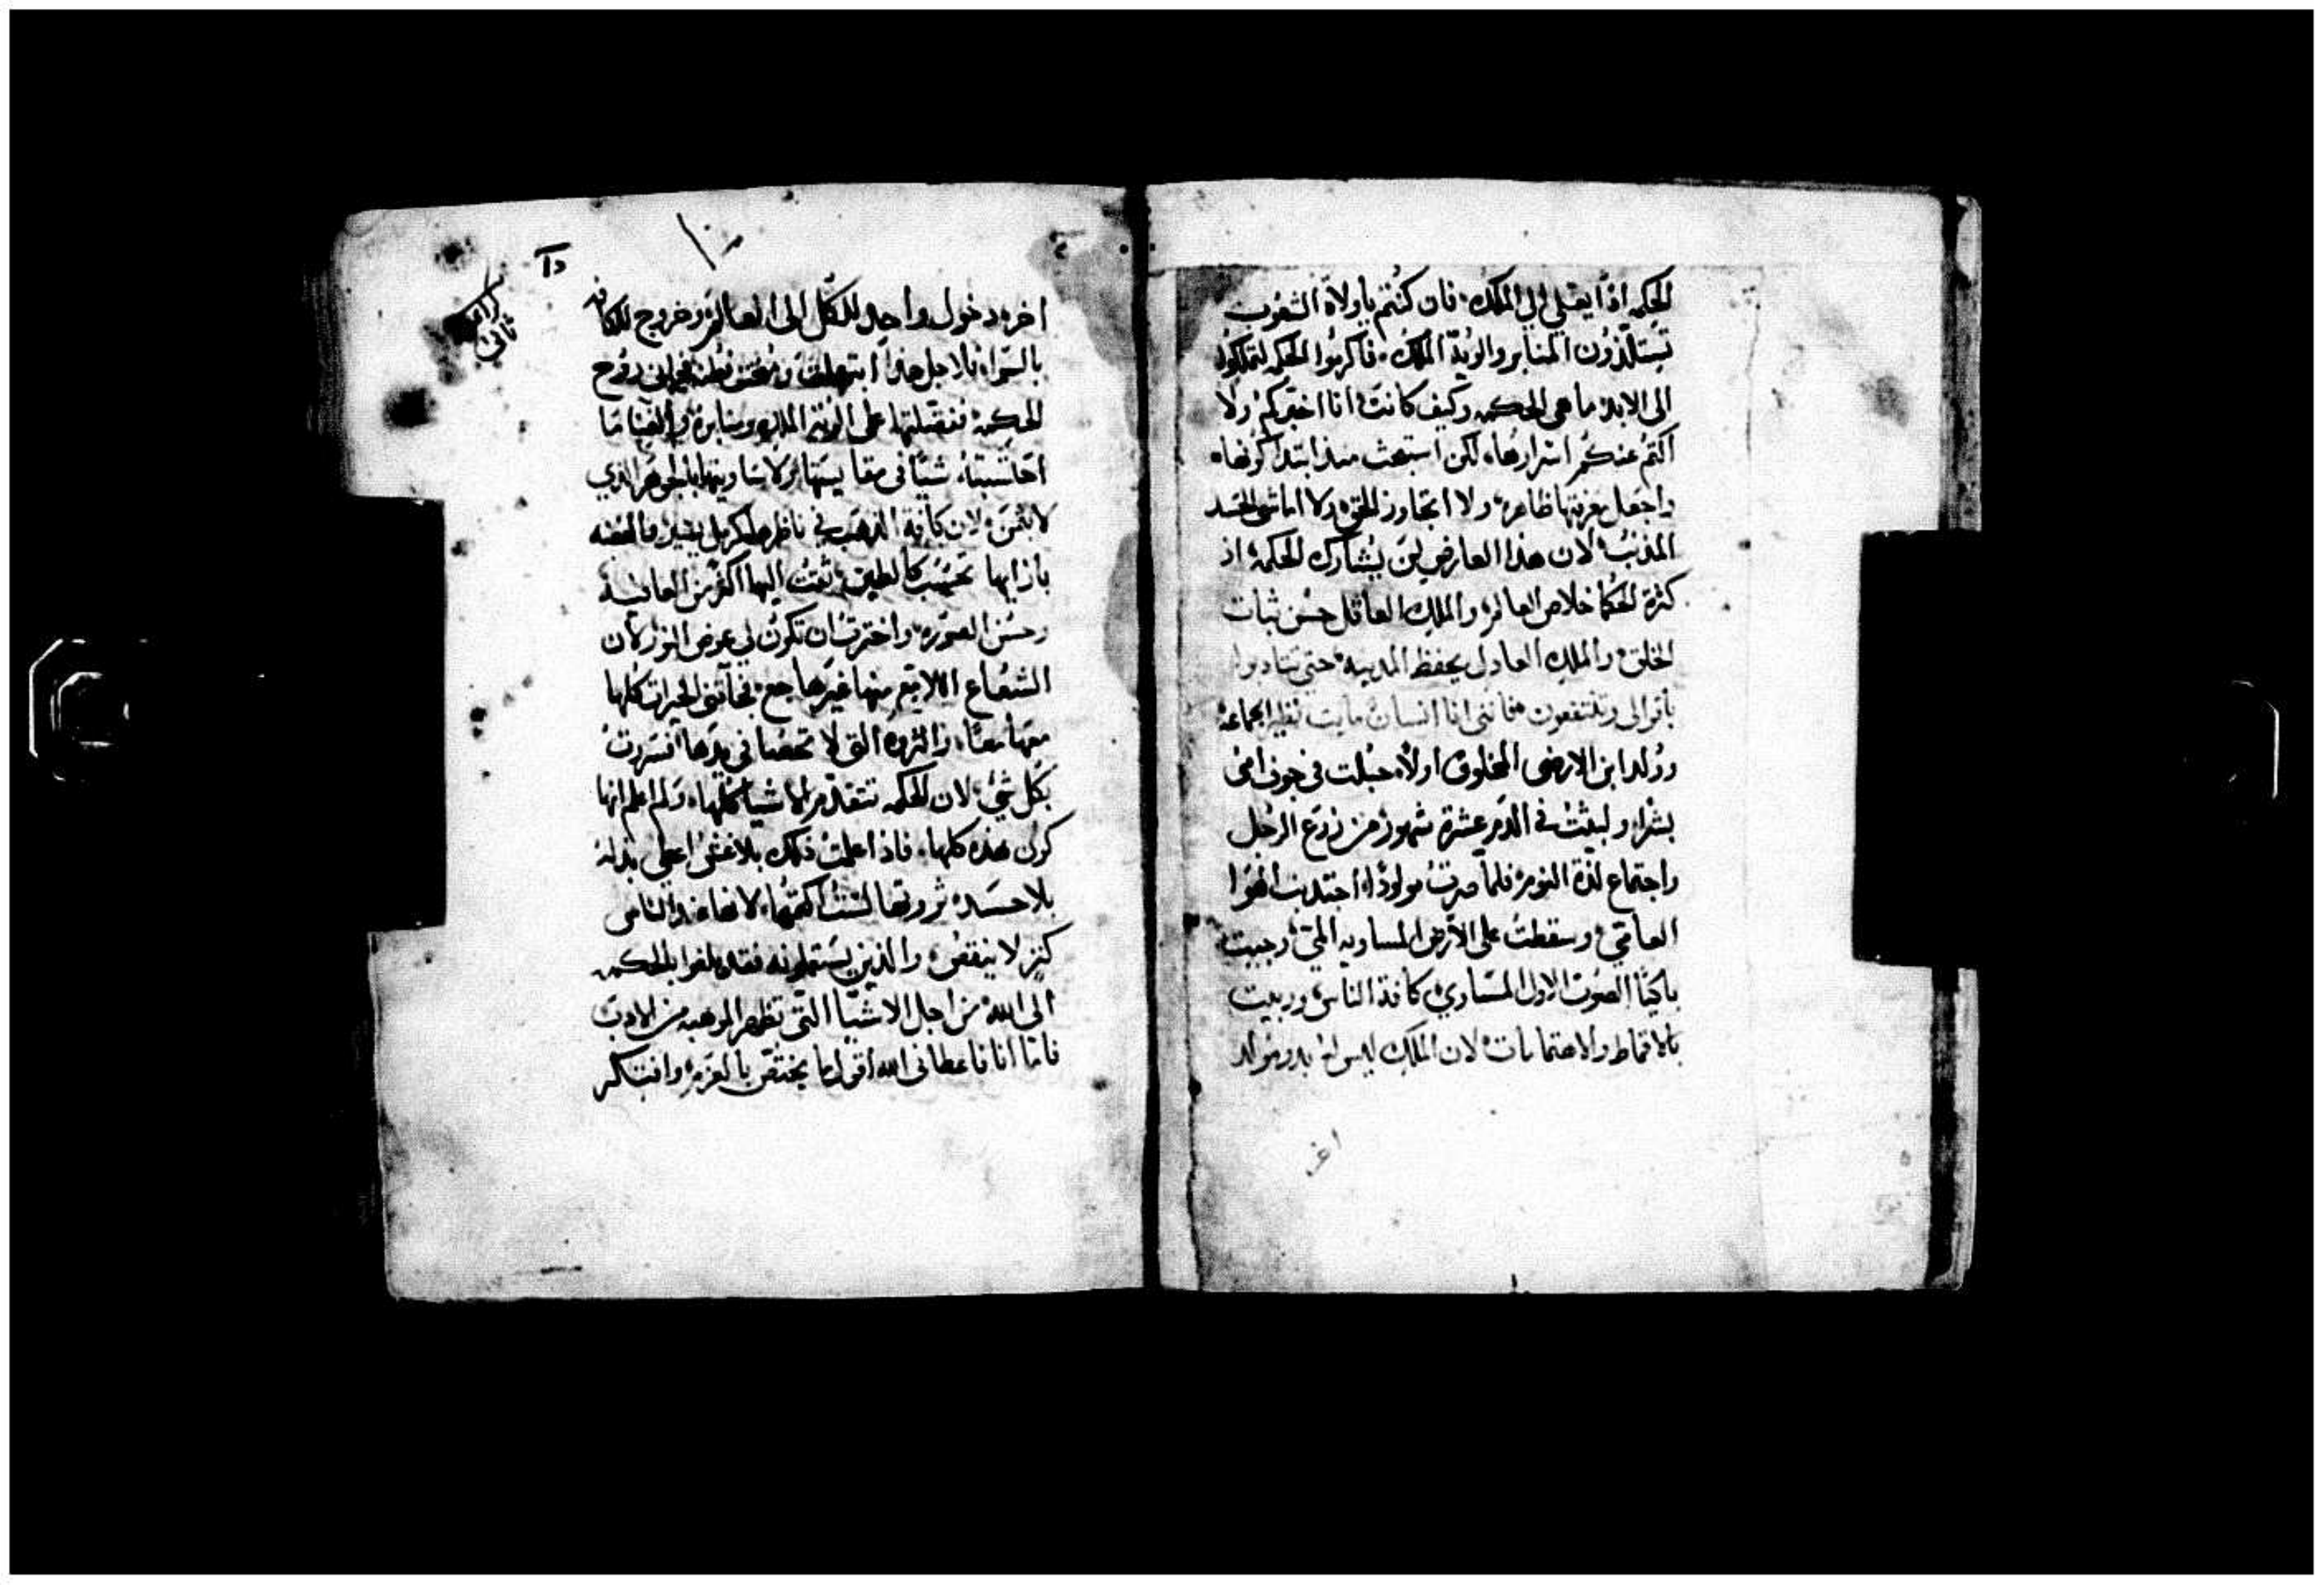 الحكمه اذًا يعلي الي الملك، فان كنتم ياولاة الشعوب
تستلذون المنابر والوية الملك، فاكرموا الحكمه لتملكوا
الى الابد، ما هي الحكمه وكيف كانت، انا اخبركم ولا
اكتم عنكم اسرارها، لكن استبحث منذ ابتدا كونها،
واجعل معرفتها ظاهره، ولا اتجاوز الحق، ولا اماشي الحسد
المذنب، لان هذا العارض لن يشارك الحكمه، اذ
كثرة الحكما خلاص العالم، والملك العاقل حسن ثبات
الخلق، والملك العادل يحفظ المدينه، حتى تتادبوا
باقوالي وتنتفعون، فانني انا انسان مايت نظير الجماعة
وولد ابن الارضي المخلوق اولاً، جبلت في جوف امي
بشرا، ولبثت في الدم عشرة شهور، من زرع الرجل
واجتماع لذة النوم، فلما صرت مولودًا، اجتذبت الهوا
العامي، وسقطت على الارض المساويه الي، وجيت
باكيًا الصوت الاول المساوي كافة الناس، وربيت
بالاقماط والاهتمامات، لان الملك ليس له بدو مولد
اخر
كراس
ثاني
اخر، دخول واحد للكل الى العالم، وخروج للكافه
بالسوا، فلاجل هذا ابتهلت
الحكمة، ففضلتها على الوية الملك ومنابره، والغنا ما
احتسبته شيًا في مقايستها، ولا ساويتها بالجوهر الذي
لا يثمن، لان كافة الذهب في ناظرها كرمل يسير، والفضه
بازايها تحسب كالطين، تقت اليها اكثر من العافية
وحسن الصوره، واخترت ان تكون لي عوض النور، لان
الشعاع اللامع منها غيرها جع، فجاتني الخيرات كلها
معها معًا، والثروه التي لا تحصا في يدها، فسررت
بكل شي، لان الحكمه تتقدم الاشيا كلها، ولم اعلم انها
كون هذه كلها، فاذ اعلمت ذلك بلا غش، اعطي بذله
بلا حسد، ثروتها لست اكتمها، لانها عند الناس
كنز لا ينقص، والذين يستعملونه فقد بلغوا بالحكمه
الى الله، من اجل الاشيا التي تظهر الموهبه من الادب
فاما انا فاعطاني الله اقول ما يختص بالعزم، وافتكر